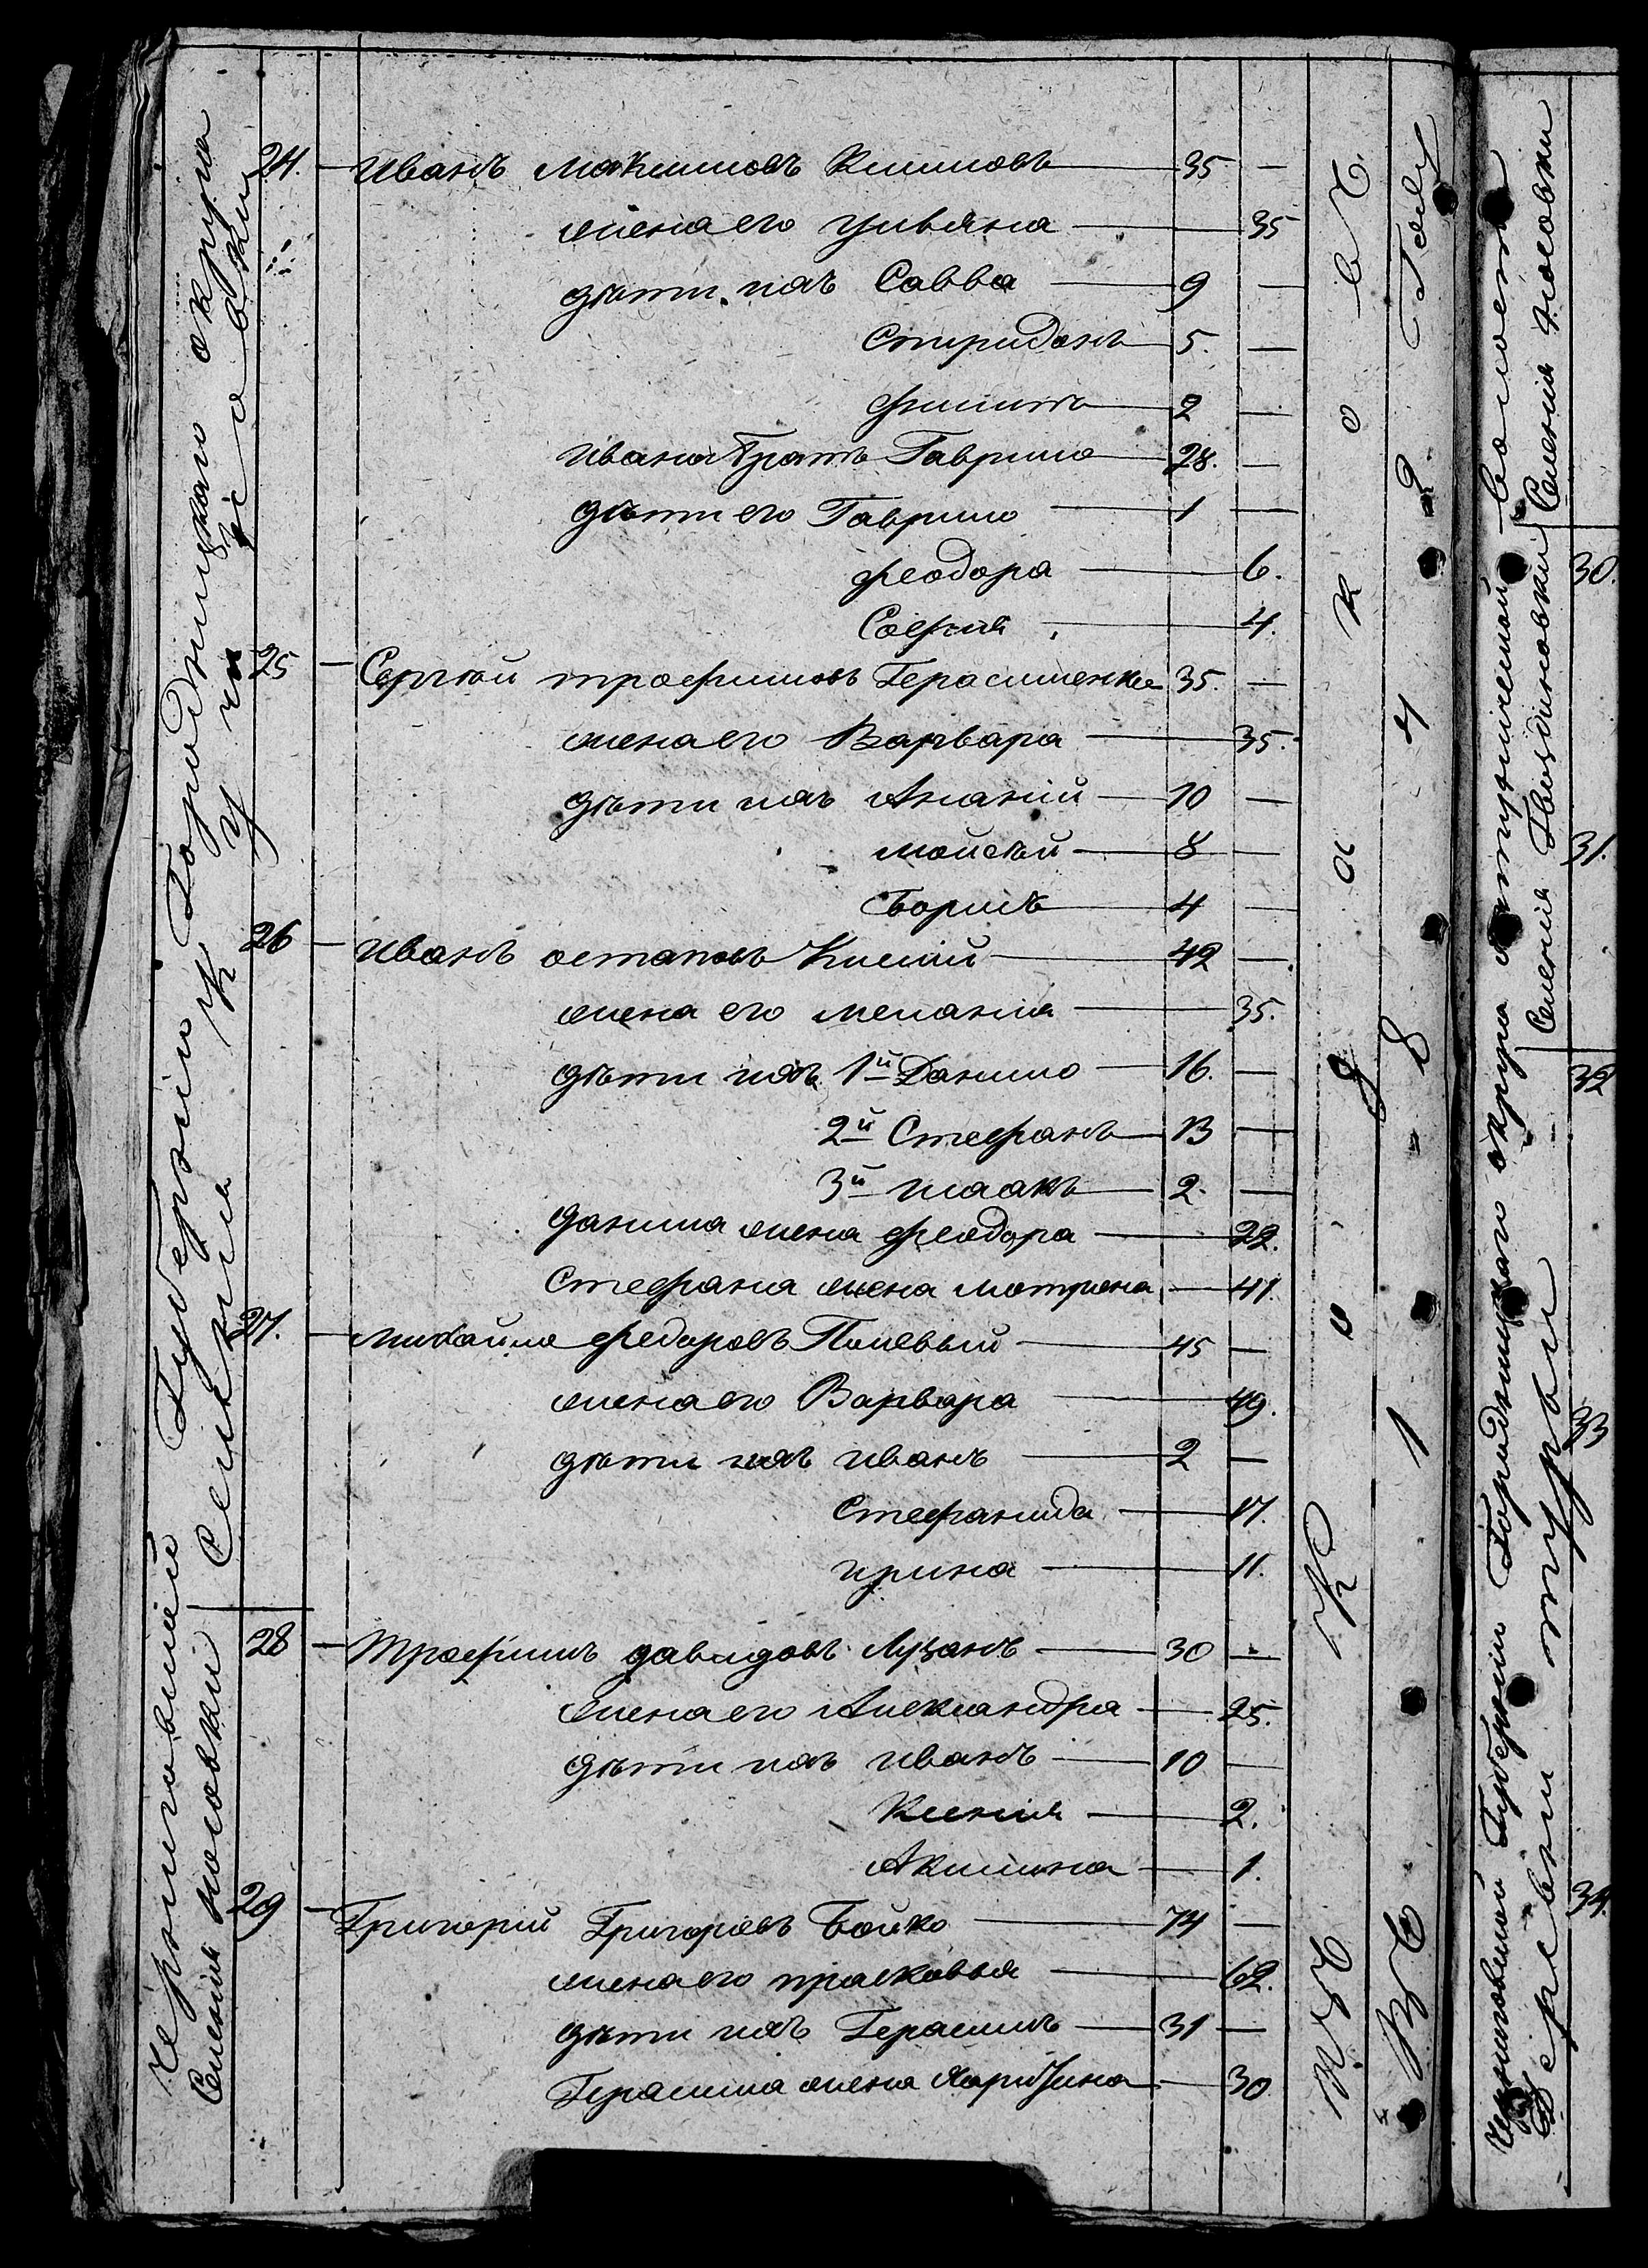 Черниговской Губерніи Городницкаго округа
Селенія Кучиновки
Селенія носовки
24. Иванъ Максимовъ Климовъ 35 —
жена его Ульяна 35
дѣти ихъ Савва 9 —
Спиридонъ 5. —
Филипъ 2 —
Ивана братъ Гаврило 28. —
дѣти его Гаврило 1 —
Феодора 6.
Софія 4.
25 Сергѣй трофимовъ Герасименко 35. —
жена его Варвара 35.
дѣти ихъ Ананій 10 —
Мойсѣй 8 —
Борисъ 4 —
26 Иванъ остаповъ Кислый 42 —
жена его меланія 35.
дѣти ихъ 1й Данило 16. —
2й Стефанъ 13 —
3й Исаакъ 2. —
данила жена Феодора 22.
Стефана жена мотрона 41
27. михайла Федоровъ Полевый 45 —
жена его Варвара 49.
дѣти ихъ иванъ 2 —
Стефанида 17.
ирина 11.
28 Трофимъ давидовъ Лузанъ 30 —
жена его Александра 25.
дѣти ихъ иванъ 10 —
Ксенія 2.
Акилина 1.
29 Григорій Григоровъ Бойко 74 —
жена его прасковья 62.
дѣти ихъ Герасимъ 31 —
Герасима жена Харитина 30
Въ 1847 Году
Черниговской Губерніи Городницкаго округа
волости
Деревни туры
Селенія
Селенія
30.
31.
32
33
34.